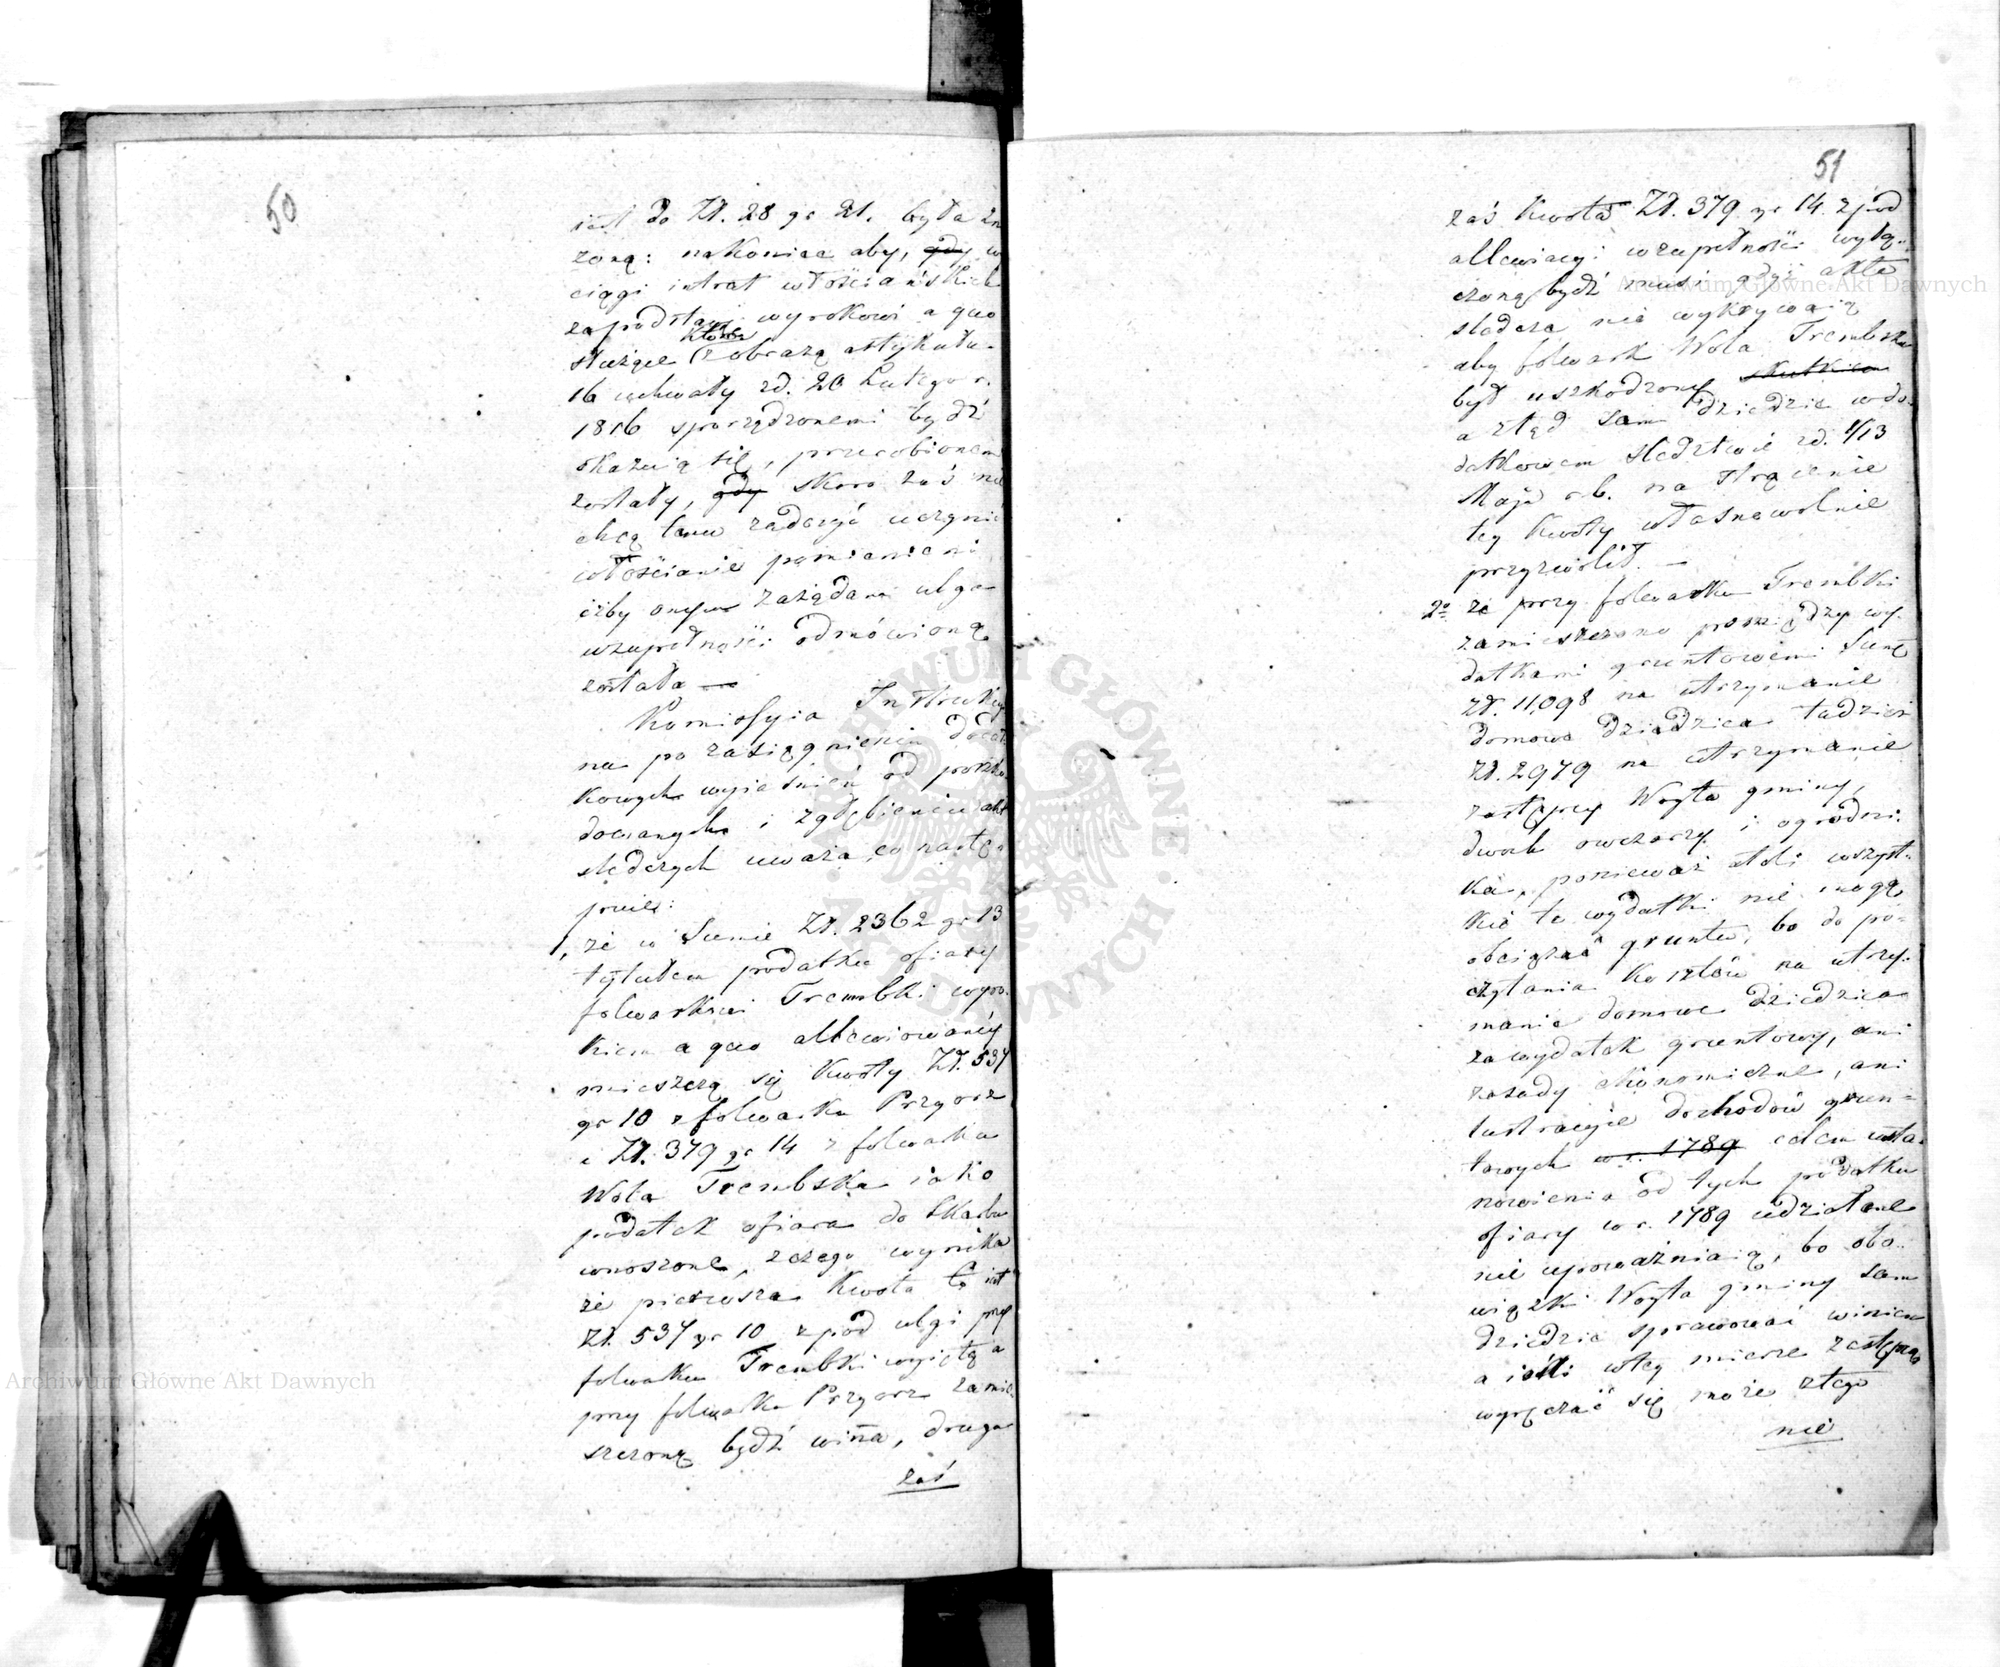 50
iest do Zł. 28 gr 21. była zni
żoną: nakoniec aby, gdy w
ciągi intrat włościańskich
zapodstawę wyrokowi a quo
służące które z obrazą artykułu
16 uchwały zd. 20 Lutego r.
1816 sporządzonemi bydź
okazuią się, przerobionemi
zostały, gdy skoro zaś nie
chcą temu zadosyć uczynić
włościanie pomienieni
iżby onym zażądana ulga
wzupełności odmówioną
została —
Kommissyia Instrukcyi
na po zasiągnieniu
kowych wyiaśnień od poszko
dowanych i zgłębieniu akt
śledczych uważa, co nastę-
puie:
1, że w Summie Zł. 2362 gr 13
tytułem podatku ofiary
folwarkowi Trembki wyro-
kiem a quo allewiowaney
mieszczą się kwoty Zł. 537
gr 10 z folwarku Przyorz
i Zł. 379 gr 14 z folwarku
Wola Trembska iako
podatek ofiara do Skarbu
wnoszone, z czego wynika
że pierwsza kwota to iest
Zł. 537 gr 10 z pod ulgi przy
folwarku Trembki wyiętą a
przy folwarku Przyorz zamie-
szczoną bydź winna, druga
zaś
51
zaś kwota Zł. 379 gr 14. z pod
allewiacyi wzupełności wyłą-
czoną bydź musi gdyż akta
śledcze nie wykrywaią
aby folwark Wola Trembska
był uszkodzony skutkiem
a ztąd sam dziedzic w do-
datkowem śledztwie zd. 1/13
Maja r.b. na strącenie
tey kwoty własnowolnie
przyzwolił. —
2o że przy folwarku Trembki
zamieszczono pomiędzy wy-
datkami gruntowemi Summę
Zł. 11,098 na utrzymanie
domowe dziedzica tudzież
Zł. 2979 na utrzymanie
zastępcy Woyta gminy,
dwoch owczarzy i ogrodni-
ka, ponieważ atoli wszyst-
kie te wydatki nie mogą
obciążać gruntu, bo do po-
czytania kosztów na utrzy-
manie domowe dziedzica
za wydatek gruntowy, ani
zasady ekonomiczne, ani
lustracyie dochodów grun-
towych w r. 1789 celem usta-
nowienia od tych podatku
ofiary w r. 1789 udziałane
nie upoważniaią, bo obo-
wiązki Woyta gminy sam
dziedzic sprawować winien
a ieśli w tey mierze zastępcą
wyręczać się może z tego
nie
Archiwum Główne Akt Dawnych
Archiwum Główne Akt Dawnych
ARCHIWUM GŁÓWNE AKT DAWNYCH